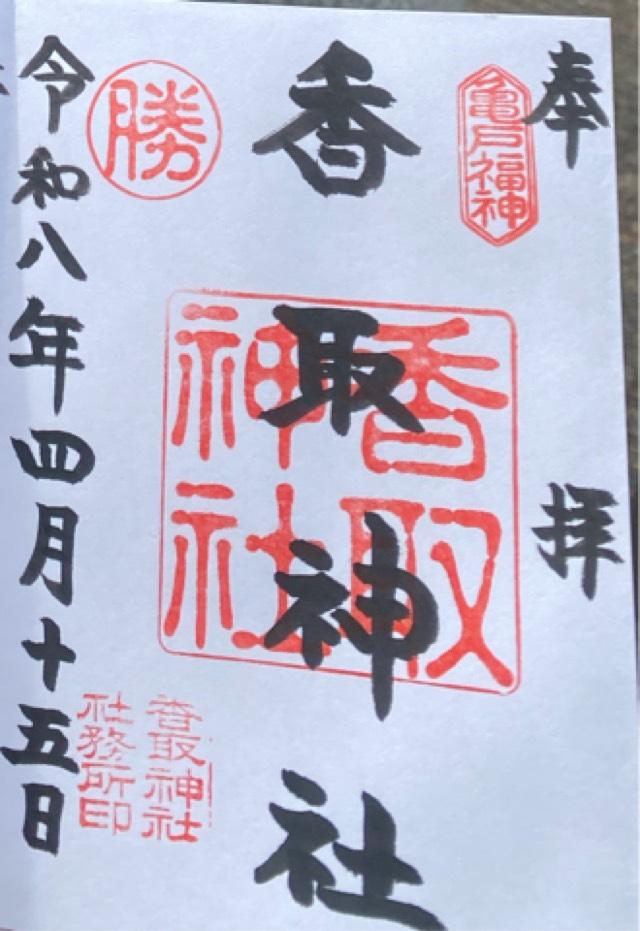 奉拝
亀戸福神
香取神社
香取神社
勝
香取神社
社務所印
令和八年四月十五日